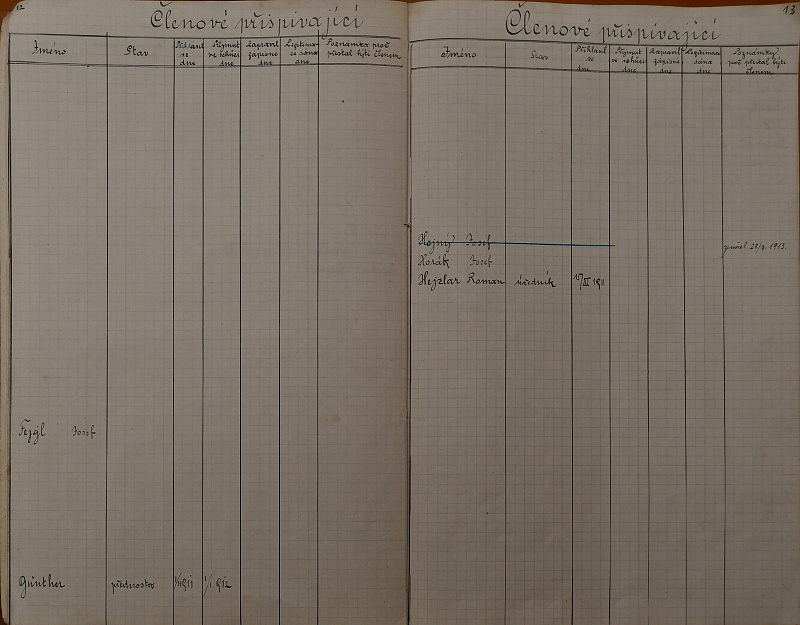 12
Členové přispívající
Jméno
Stav
Přihlásil se dne
Přijmut ve schůzi dne
Zapravil zápisné dne
Legitimace dána dne
Poznámka proč přestal býti členem
Fejgl Josef
Günther přednosta
13
Členové přispívající
Jméno
Stav
Přihlásil se dne
Přijmut ve schůzi dne
Zapravil zápisné dne
Legitimace dána dne
Poznámky proč přestal býti členem
Hojný Josef
Horák Josef
Hejzlar Roman úředník